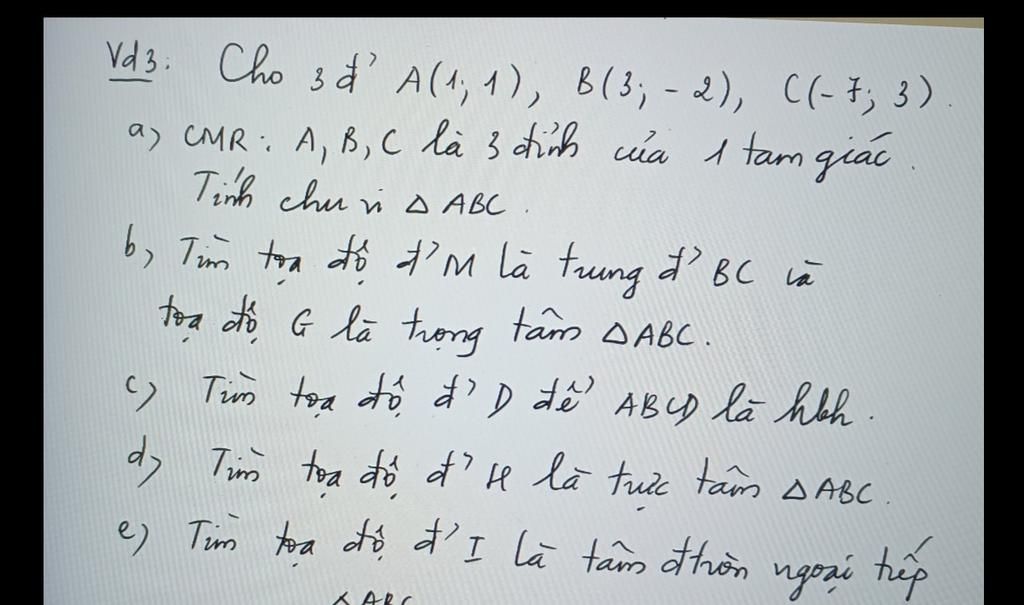 Vd3: Cho 3 đ' A(1; 1), B(3; -2), C(-7; 3).
a) CMR: A, B, C là 3 đỉnh của 1 tam giác.
Tính chu vi △ ABC.
b) Tìm tọa độ đ' M là trung đ' BC và
tọa độ G là trọng tâm △ABC.
c) Tìm tọa độ đ' D để ABCD là hbh.
d) Tìm tọa độ đ' H là trực tâm △ABC.
e) Tìm tọa độ đ' I là tâm đtròn ngoại tiếp
△ABC